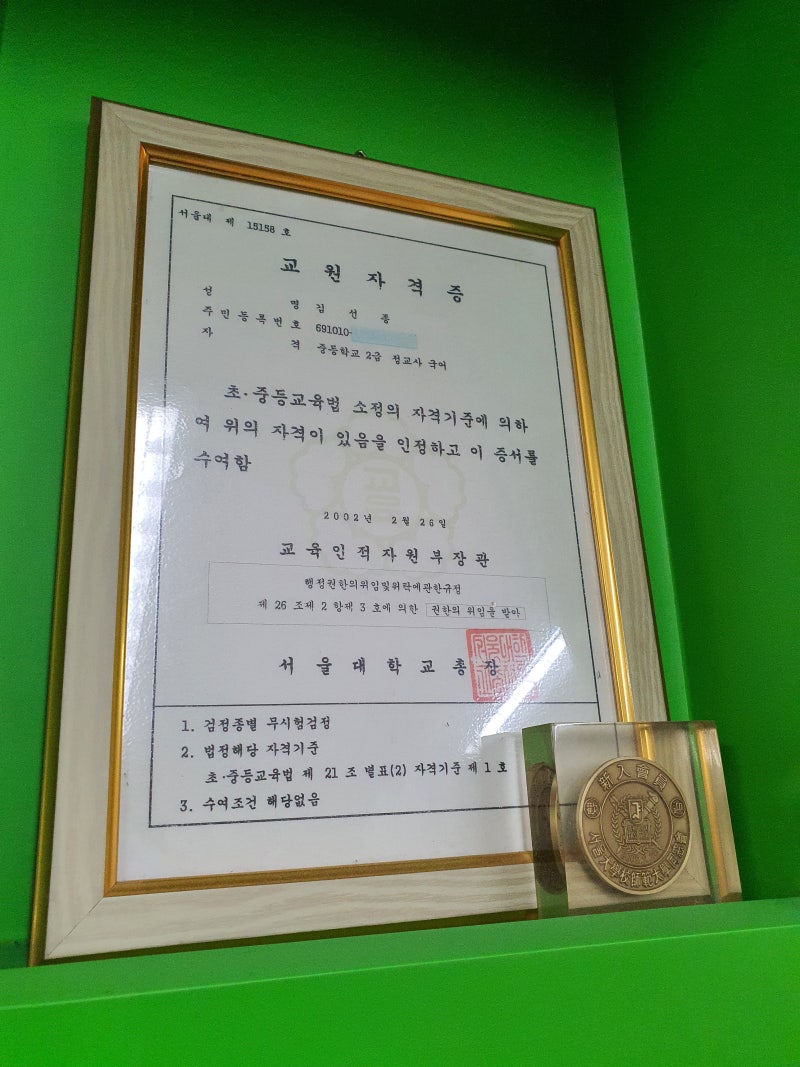 서울대 제 15158 호
교원자격증
성 명 김 선 종
주민등록번호 691010-
자 격 중등학교 2급 정교사 국어
초·중등교육법 소정의 자격기준에 의하
여 위의 자격이 있음을 인정하고 이 증서를
수여함
2002년 2월 26일
교육인적자원부장관
행정권한의위임및위탁에관한규정
제 26 조제 2 항제 3 호에 의한 권한의 위임을 받아
서울대학교총장
1. 검정종별 무시험검정
2. 법정해당 자격기준
초·중등교육법 제 21 조 별표(2) 자격기준 제 1 호
3. 수여조건 해당없음
新入會員
서울大學校師範大學同窓會